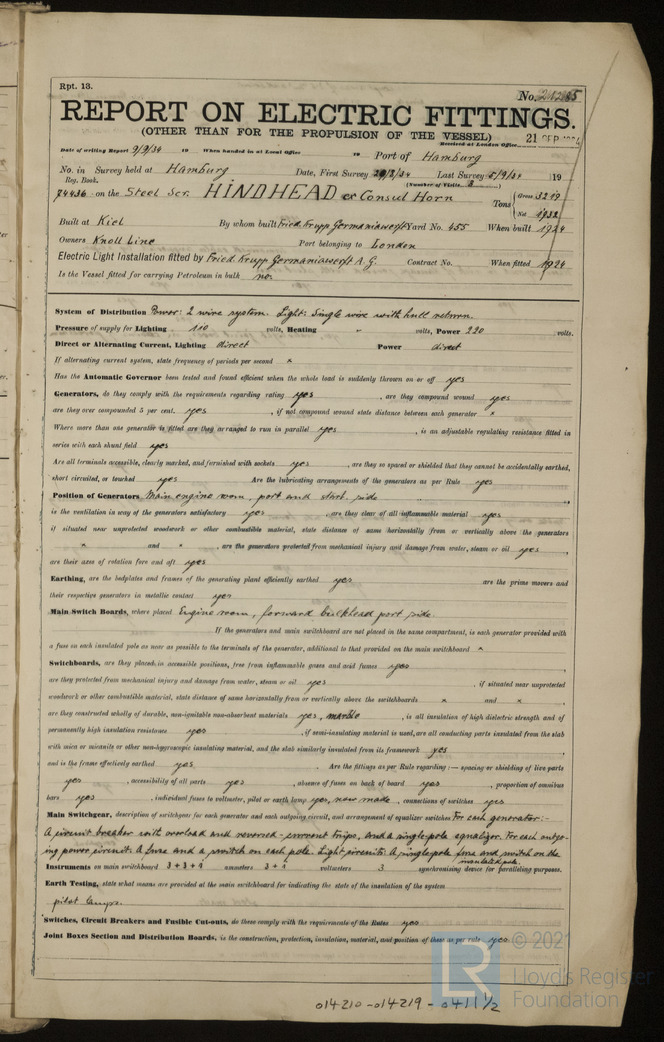 Rpt. 13.
No. 21265
REPORT ON ELECTRIC FITTINGS.
(OTHER THAN FOR THE PROPULSION OF THE VESSEL)
Received at London Office
21 SEP 1934
Date of writing Report 9/9/34 19 When handed in at Local Office 19 Port of Hamburg
No. in Survey held at Hamburg Date, First Survey 29/8/34 Last Survey 5/9/34 19
Reg. Book. (Number of Visits 3)
74436 on the Steel Scr. HINDHEAD ex Consul Horn Tons Gross 3219
Net 1932
Built at Kiel By whom built Fried. Krupp Germaniawerft Yard No. 455 When built 1924
Owners Knoll Line Port belonging to London
Electric Light Installation fitted by Fried. Krupp Germaniawerft A.G. Contract No. When fitted 1924
Is the Vessel fitted for carrying Petroleum in bulk no.
System of Distribution Power: 2 wire system. Light: Single wire with hull return.
Pressure of supply for Lighting 110 volts, Heating - volts, Power 220 volts.
Direct or Alternating Current, Lighting direct Power direct
If alternating current system, state frequency of periods per second ×
Has the Automatic Governor been tested and found efficient when the whole load is suddenly thrown on or off yes
Generators, do they comply with the requirements regarding rating yes, are they compound wound yes
are they over compounded 5 per cent. yes, if not compound wound state distance between each generator ×
Where more than one generator is fitted are they arranged to run in parallel yes, is an adjustable regulating resistance fitted in
series with each shunt field yes
Are all terminals accessible, clearly marked, and furnished with sockets yes, are they so spaced or shielded that they cannot be accidentally earthed,
short circuited, or touched yes Are the lubricating arrangements of the generators as per Rule yes
Position of Generators Main engine room, port and starb. side
is the ventilation in way of the generators satisfactory yes, are they clear of all inflammable material yes
if situated near unprotected woodwork or other combustible material, state distance of same horizontally from or vertically above the generators
× and ×, are the generators protected from mechanical injury and damage from water, steam or oil yes,
are their axes of rotation fore and aft yes
Earthing, are the bedplates and frames of the generating plant efficiently earthed yes are the prime movers and
their respective generators in metallic contact yes
Main Switch Boards, where placed Engine room, forward bulkhead port side
If the generators and main switchboard are not placed in the same compartment, is each generator provided with
a fuse on each insulated pole as near as possible to the terminals of the generator, additional to that provided on the main switchboard ×
Switchboards, are they placed in accessible positions, free from inflammable gases and acid fumes yes,
are they protected from mechanical injury and damage from water, steam or oil yes, if situated near unprotected
woodwork or other combustible material, state distance of same horizontally from or vertically above the switchboards × and ×,
are they constructed wholly of durable, non-ignitable non-absorbent materials yes, marble, is all insulation of high dielectric strength and of
permanently high insulation resistance yes, if semi-insulating material is used, are all conducting parts insulated from the slab
with mica or micanite or other non-hygroscopic insulating material, and the slab similarly insulated from its framework yes,
and is the frame effectively earthed yes. Are the fittings as per Rule regarding :— spacing or shielding of live parts
yes, accessibility of all parts yes, absence of fuses on back of board yes, proportion of omnibus
bars yes, individual fuses to voltmeter, pilot or earth lamp yes, now made, connections of switches yes
Main Switchgear, description of switchgear for each generator and each outgoing circuit, and arrangement of equalizer switches For each generator:-
A circuit breaker with overload and reversed-current trips, and a single-pole equalizer. For each outgo-
ing power circuit: A fuse and a switch on each pole. Light circuits: A single-pole fuse and switch on the
insulated pole.
Instruments on main switchboard 3+3+4 ammeters 3+1 voltmeters 3 synchronising device for paralleling purposes.
Earth Testing, state what means are provided at the main switchboard for indicating the state of the insulation of the system
pilot lamps.
Switches, Circuit Breakers and Fusible Cut-outs, do these comply with the requirements of the Rules yes
Joint Boxes Section and Distribution Boards, is the construction, protection, insulation, material, and position of these as per rule yes
© 2021
LR
Lloyd's Register
Foundation
014210-014219-0411 1/2